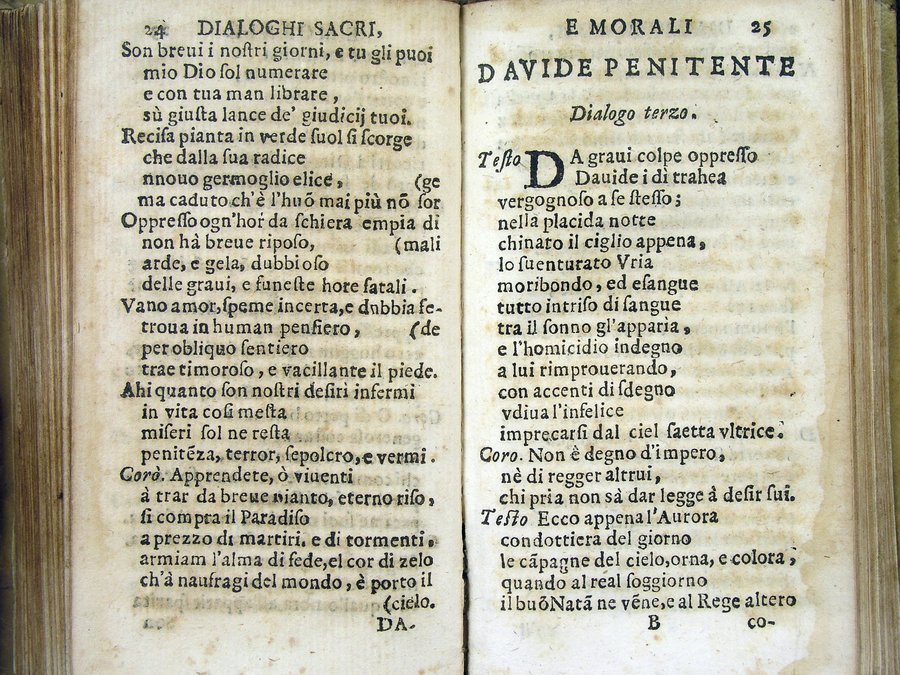 24 DIALOGHI SACRI,
Son breui i noſtri giorni, e tu gli puoi
mio Dio ſol numerare
e con tua man librare,
sù giuſta lance de' giudicij tuoi.
Reciſa pianta in verde ſuol ſi ſcorge
che dalla ſua radice
nnouo germoglio elice, (ge
ma caduto ch'è l'huõ mai più nõ ſor
Oppreſſo ogn'hor da ſchiera empia di
non hà breue ripoſo, (mali
arde, e gela, dubbioſo
delle graui, e funeſte hore fatali.
Vano amor, ſpeme incerta, e dnbbia fe-
troua in human penſiero, (de
per obliquo ſentiero
trae timoroſo, e vacillante il piede.
Ahi quanto ſon noſtri deſiri infermi
in vita coſi meſta
miſeri ſol ne reſta
penitẽza, terror, ſepolcro, e vermi.
Corò. Apprendete, ò viuenti
à trar da breue pianto, eterno riſo,
ſi compra il Paradiſo
a prezzo di martiri. e di tormenti,
armiam l'alma di fede, el cor di zelo
ch'à naufragi del mondo, è porto il
(cielo.
DA-
E MORALI 25
DAVIDE PENITENTE
Dialogo terzo.
Teſto DA graui colpe oppreſſo
Dauide i dì trahea
vergognoſo a ſe ſteſſo;
nella placida notte
chinato il ciglio appena,
lo ſuenturato Vria
moribondo, ed eſangue
tutto intriſo di ſangue
tra il ſonno gl'apparia,
e l'homicidio indegno
a lui rimprouerando,
con accenti di ſdegno
vdiua l'infelice
imprecarſi dal ciel ſaetta vltrice.
Coro. Non è degno d'impero,
nè di regger altrui,
chi pria non sà dar legge à deſir ſui.
Teſto Ecco appena l'Aurora
condottiera del giorno
le cãpagne del cielo, orna, e colora;
quando al real ſoggiorno
il buõ Natã ne vẽne, e al Rege altero
B co-